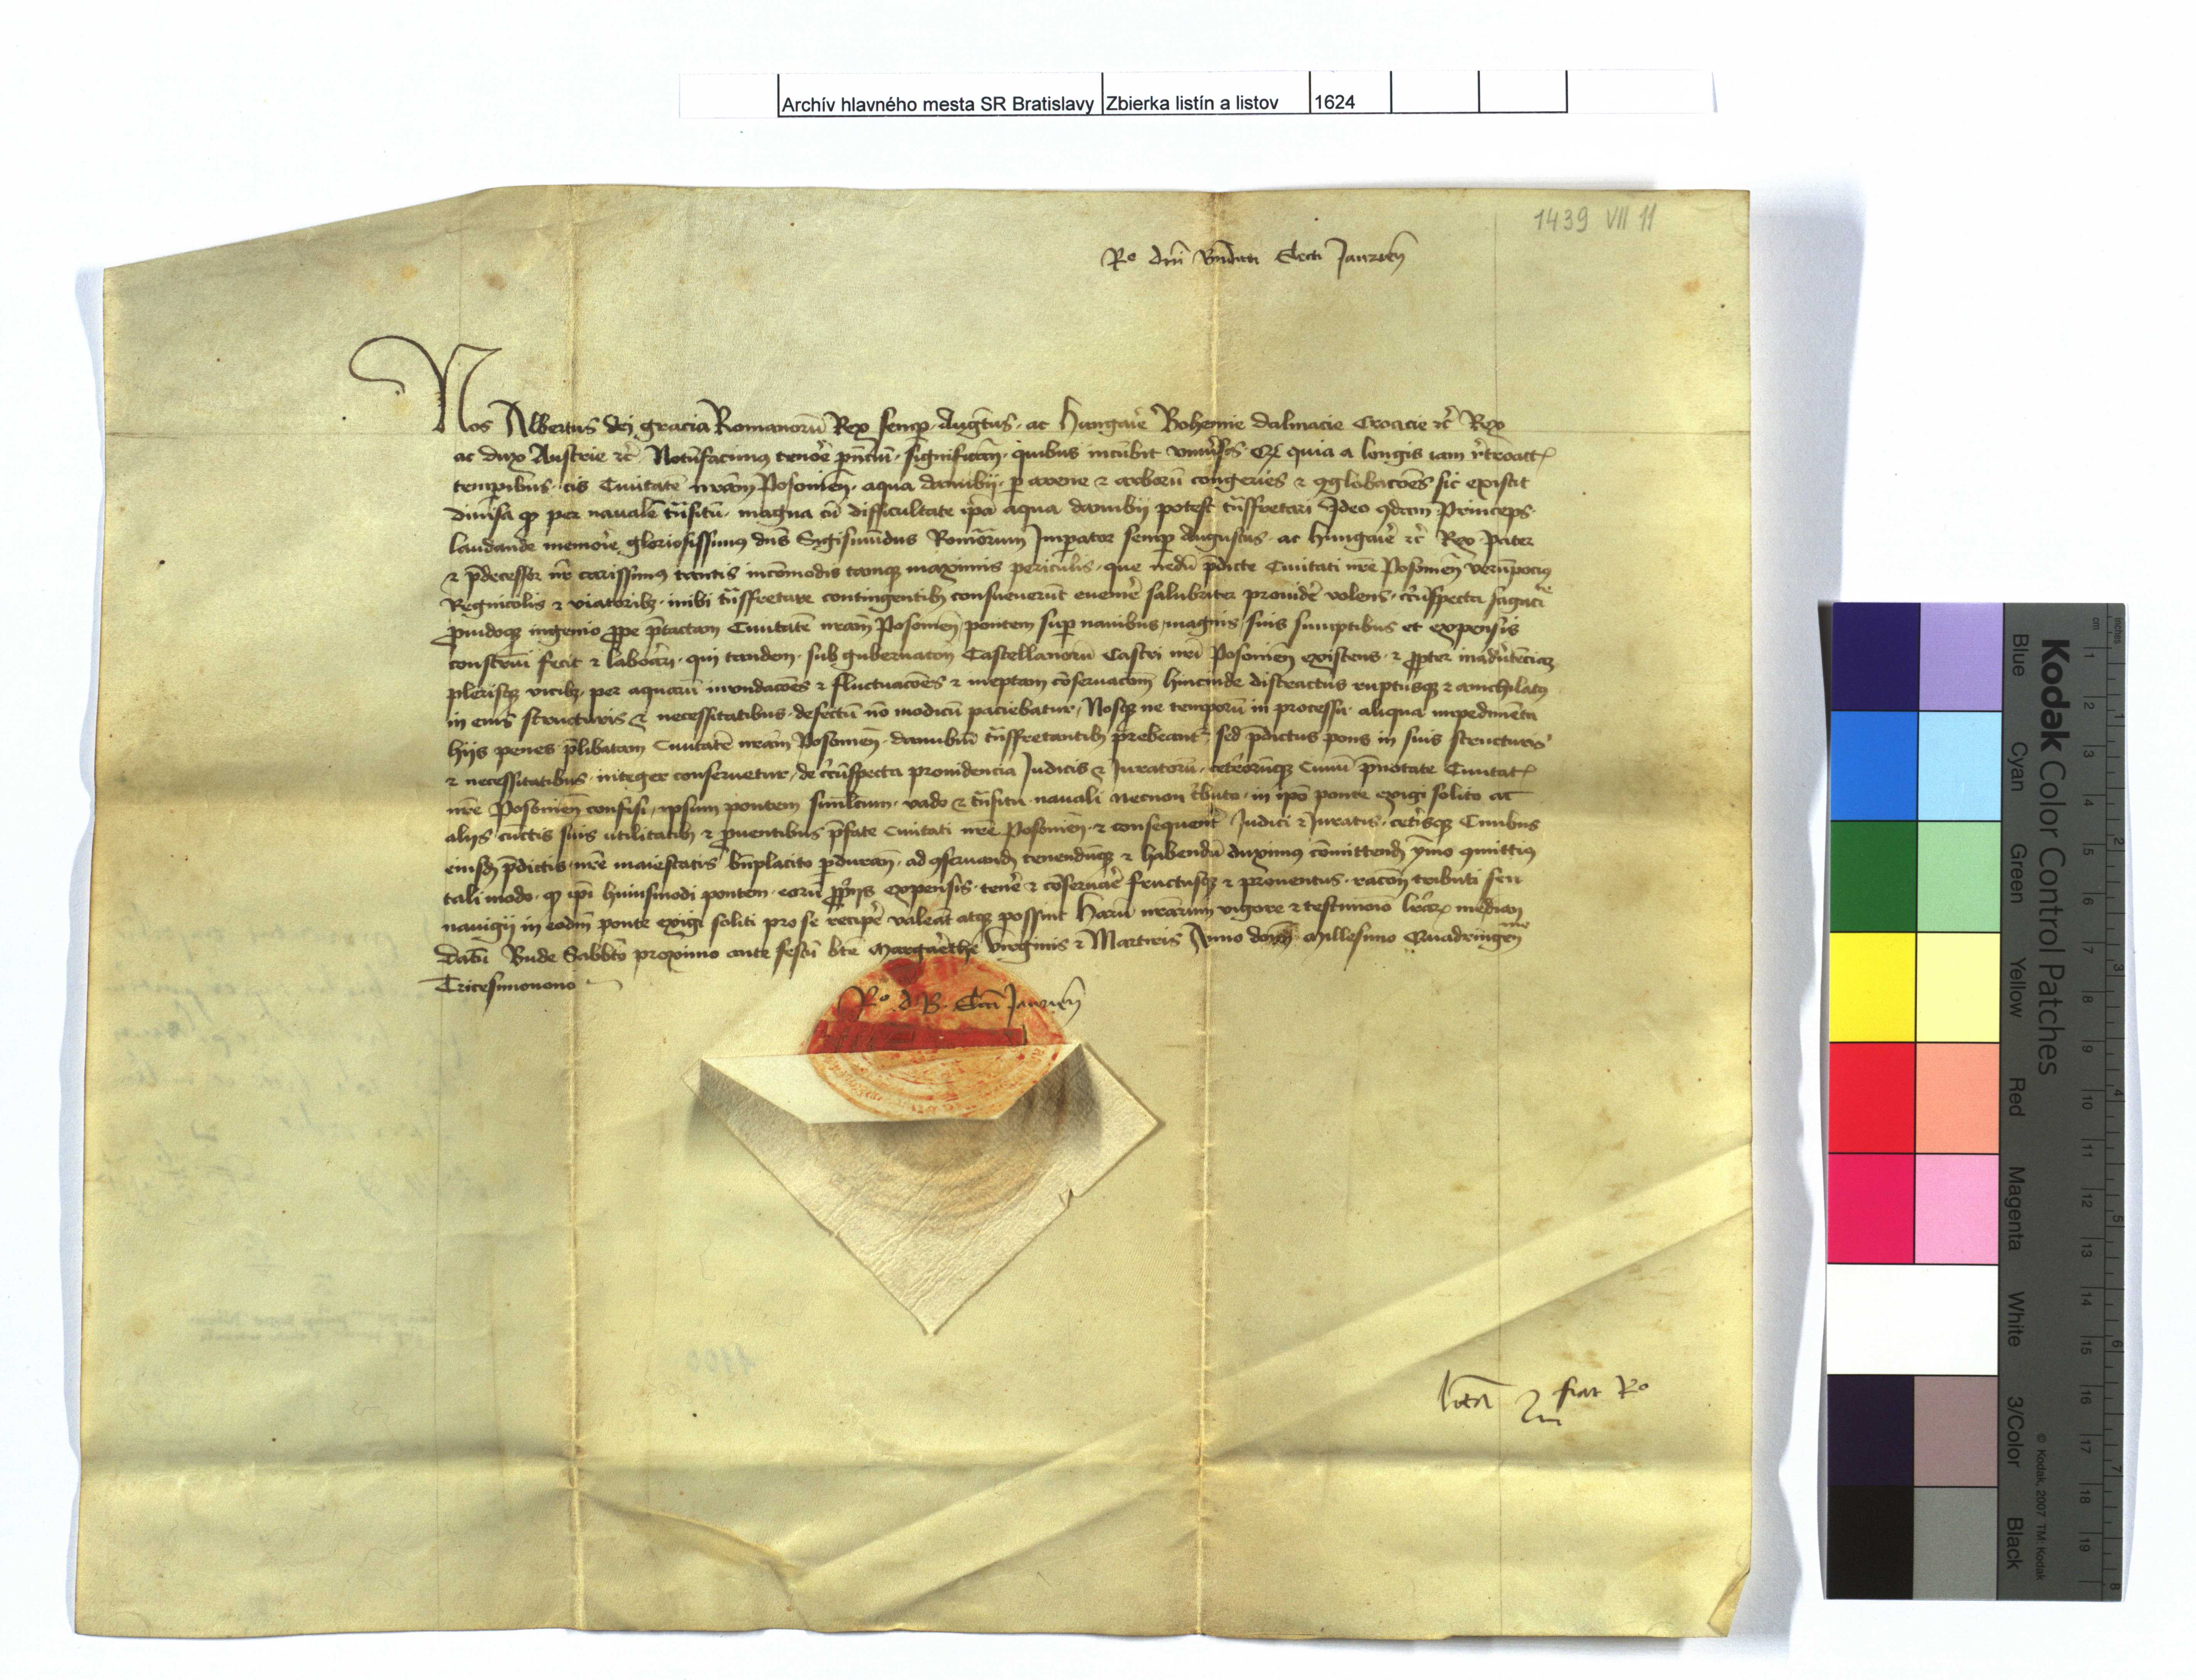 Archív hlavného mesta SR Bratislavy Zbierka listín a listov 1624
1439 VII 11
Ro dni Electi Jaurien
Nos Albertus dei gracia Romanorū Rex semp Augtus ac Hungarie Bohemie Dalmacie Croacie etc Rex
ac dux Austrie etc Notūfacimus tenore pntiū significan quibus incūbit univsis Qd quia a longis iam retroactis
tempibus cis Civitatē nram Posonien aqua danubii p arene et arborū congeries et gglobacoēs sic existit
divisa qd per navalē tnsitū magna cū difficultate ipa aqua danubii potest tnsfretari Ideo qdam Princeps
laudande memorie gloriosissimus dns Sigismūdus Romanorum Imperator semp Augustus ac Hungarie etc Rex Pater
et pdecessor nr carissimus tantis incōmodis tamqz maximis periculis que nedū pdicte Civitati nre Posonien verūpocius
Regnicolis et viatoribz inibi tnsfretare contingentibz consueverūt evenire salubriter providere volens circūspecta sagaci
pvidoqz ingenio ppe ptactam Civitatē nram Posonien pontem sup navibus magnis suis sumptibus et expensis
construi fecit et laborari qui tandem sub gubernacōn Castellanorū Castri nri Posonien existens et ppter inadvtēciaz
plerisqz vicibz per aquarū inundacoēs et fluctuacoēs et ineptam cōservacōem hincinde distractus ruptusqz et annichilatus
in eius structuris et necessitatibus defectū nō modicū paciebatur Nosqz ne temporū in processu aliqua impedimēta
hijs penes plibatam Civitatē nram Posonien danubiū tnsfretantibz prebeantur sed pdictus pons in suis structuris
et necessitatibus integer conservetur de circūspecta providencia Judicis et Juratorū ceterorūqz Civiū pnotate Civitatis
nre Posonien confisi ipsum pontem simlcum vado et tnsitu navali necnon tributo in ipo ponte exigi solito ac
alijs cūctis suis utilitatibz et pventibus pfate Civitati nre Posonien et consequentr Judici et Juratis ceterisqz Civibus
eiusdem pdictis nre maiestatis bnplacito pduran ad gservandum tenendūqz et habendū duximus cōmittendum ymo gmittimus
tali modo qd ipi huiusmodi pontem eorū pprijs expensis tenere et cōservare fructusqz et proventus racōne tributi seu
navigij in eodm ponte exigi soliti pro se recipere valeāt atqz possint Harū nrarum vigore et testimonio lrarum median
Datū Bude Sabbto proximo ante festū bte Margarethe Virginis et Martiris Anno domi Millesimo Quadringenmo
Tricesimonono
Ro d B Elcti Jaurien
fiat Ro
Kodak Color Control Patches
Blue Cyan Green Yellow Red Magenta White 3/Color Black
© Kodak, 2007 TM: Kodak
inches 1 2 3 4 5 6 7 8
cm 1 2 3 4 5 6 7 8 9 10 11 12 13 14 15 16 17 18 19